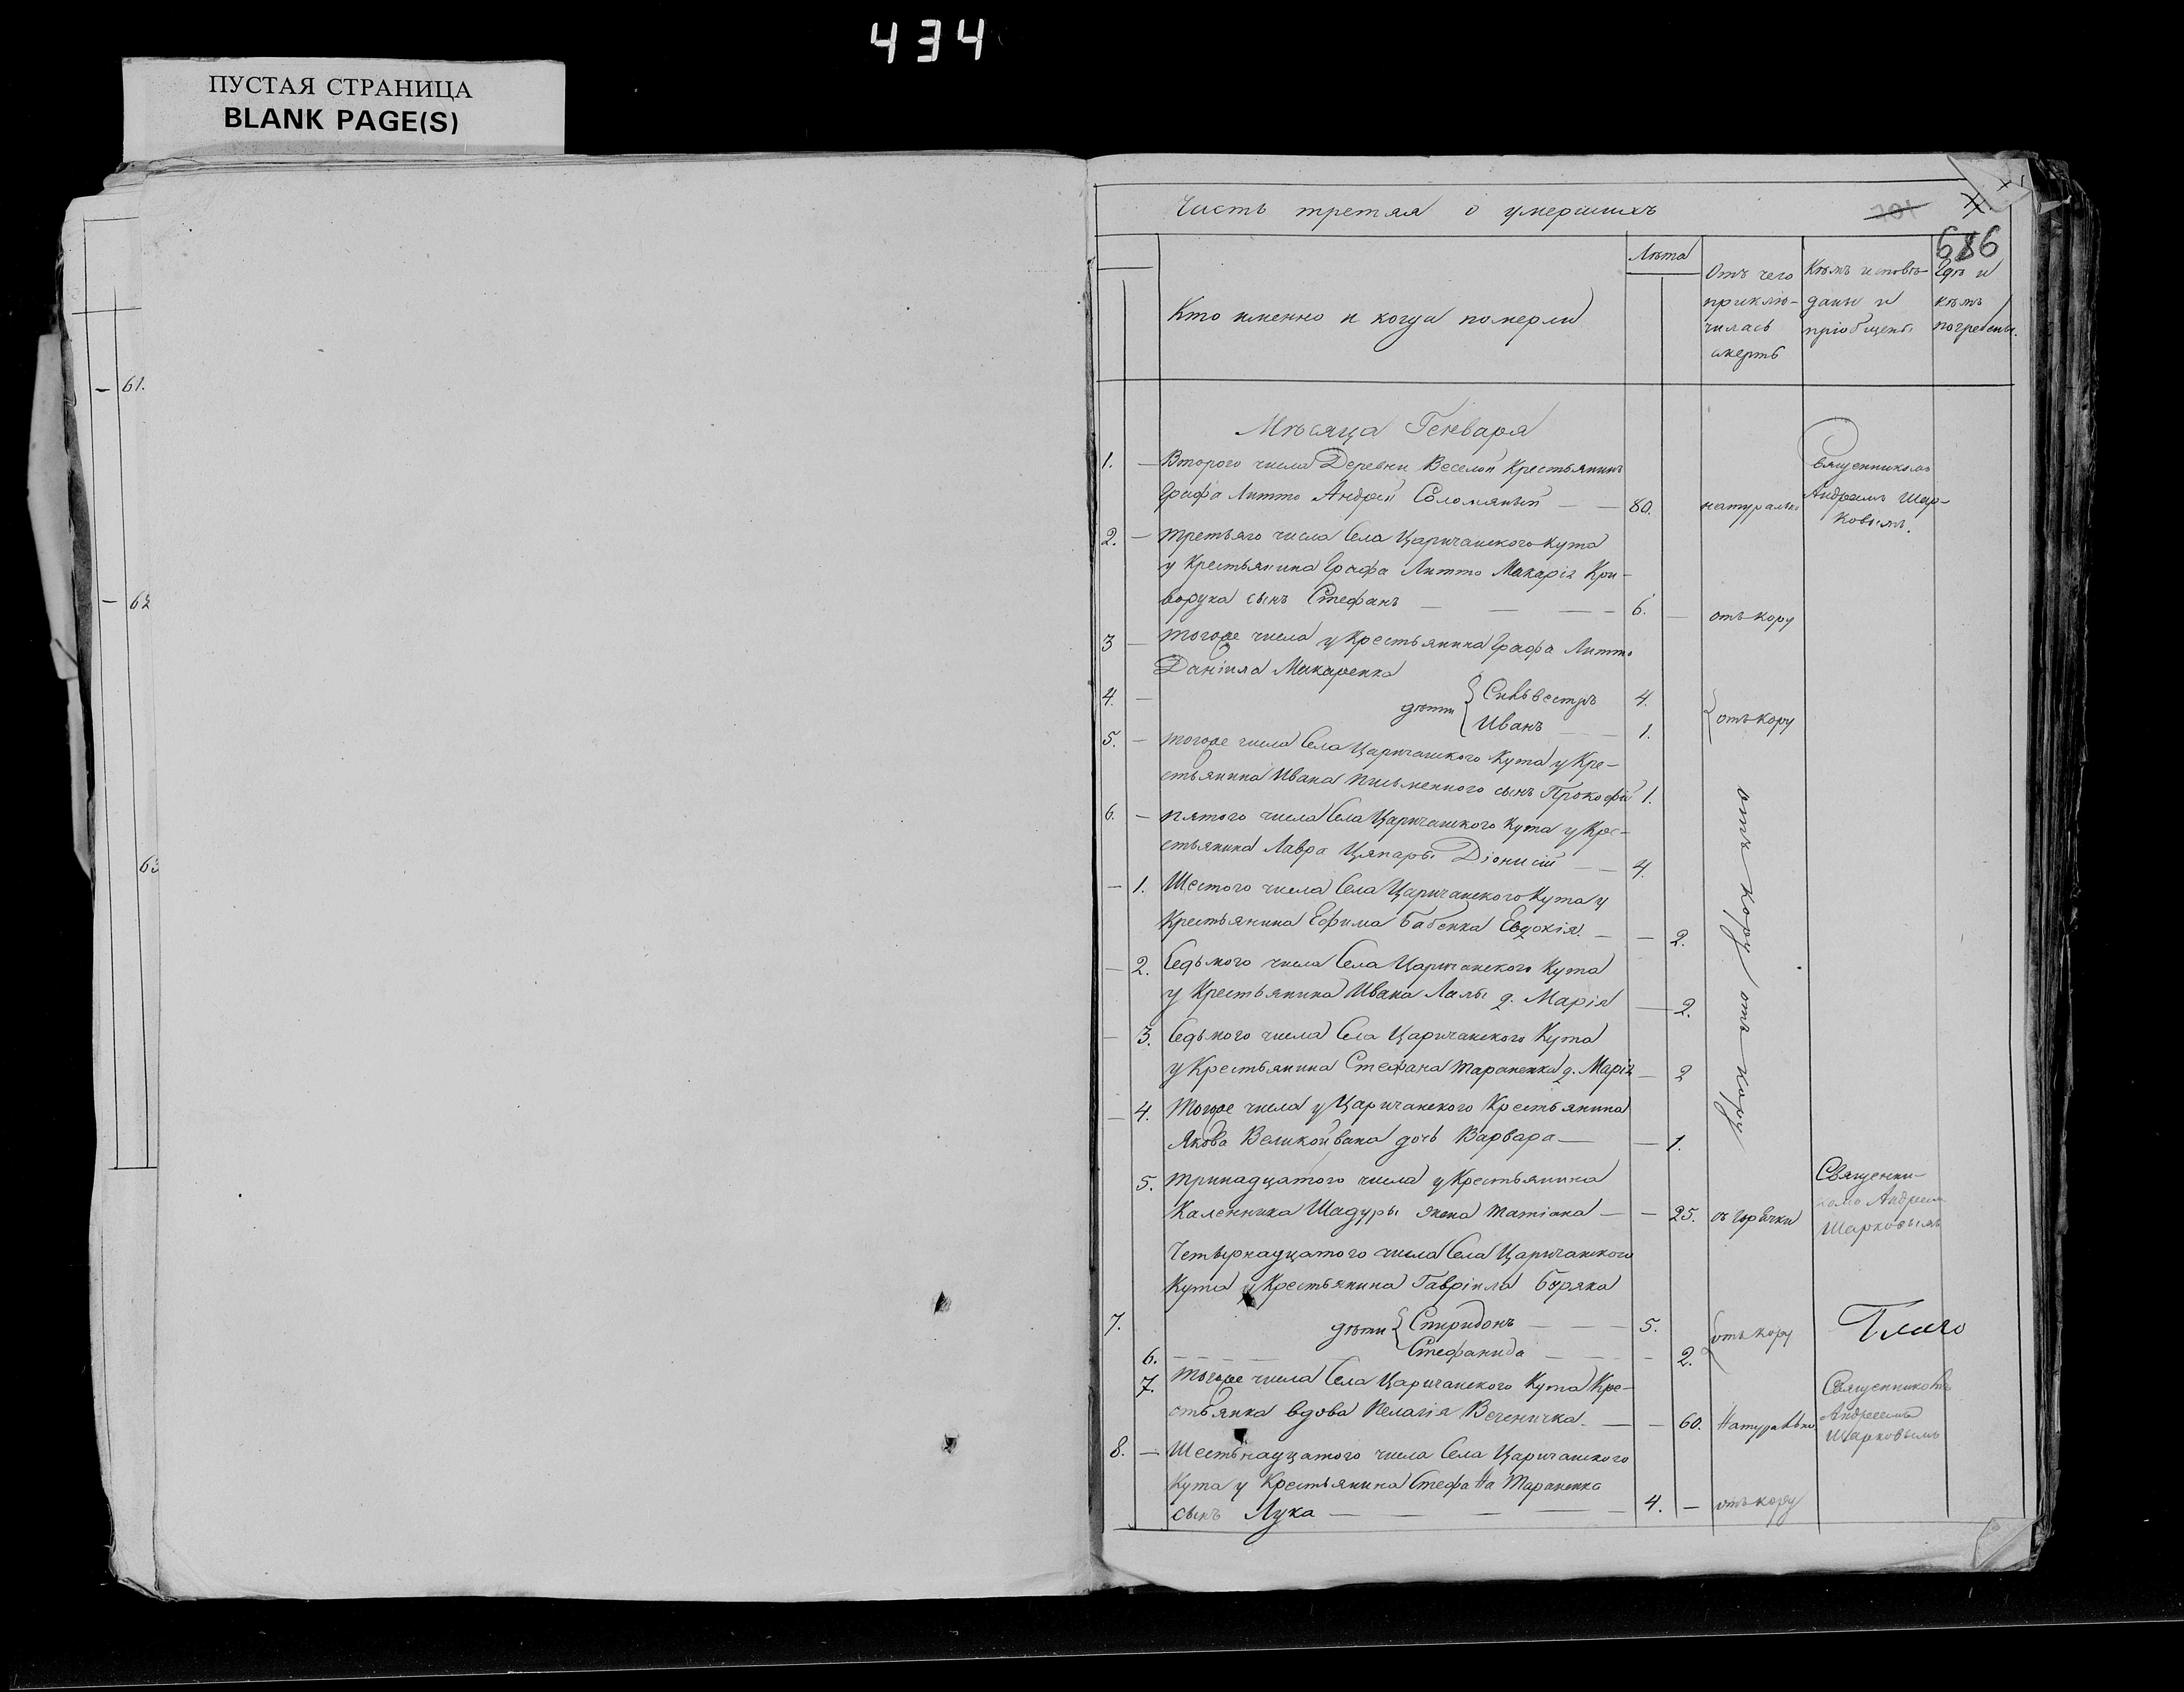 434
ПУСТАЯ СТРАНИЦА
BLANK PAGE(S)
61.
62
63
Часть третяя о умершихъ
701
686
Кто именно и когда померли
Лѣта
Отъ чего приклю-чилась смерть
Кѣмъ исповѣ-даны и пріобщены
Гдѣ и кѣмъ погребены.
Мѣсяца Генваря
1. — Второго числа Деревни Веселой Крестьянинъ
Графа Литто Андрей Соломяный — — 80. натурально Священникомъ Андреемъ Шар-ковымъ.
2. — третьяго числа Села Царичанского Кута
у Крестьянина Графа Литто Макарія Кри-
ворука сынъ Стефанъ — — — 6. — отъ кору
3 — тогоже числа у Крестьянина Графа Литто
Даніила Макаренка
4. — дѣти { Сильвестръ 4.
Иванъ — — 1. } отъ кору
5. — тогоже числа Села Царичанского Кута у Кре-
стьянина Ивана Письменного сынъ Прокофій 1.
6. — пятого числа Села Царичанского Кута у Кре-
стьянина Лавра Цяпары Діонисій — — 4.
отъ кору отъ кору
— 1. Шестого числа Села Царичанского Кута у
Крестьянина Ефима Бабенка Евдокія. — — 2.
— 2. Седьмого числа Села Царичанского Кута
у Крестьянина Ивана Лалы д. Марія — 2.
— 3. Седьмого числа Села Царичанского Кута
у Крестьянина Стефана Тараненка д. Марія — 2
— 4. Тогоже числа у Царичанского Крестьянина
Якова Великоивана дочь Варвара — — 1.
5. тринадцатого числа у Крестьянина
Каленника Шадуры жена Татіана — — 25. отъ горячки Священни-комъ Андреем Шарковымъ
Четырнадцатого числа Села Царичанского
Кута у Крестьянина Гавріила Буряка
7. дѣти { Спиридонъ — — 5.
6. — — — Стефанида — — 2. } отъ кору
7. Тогоже числа Села Царичанского Кута Кре-
стьянка вдова Пелагія — — 60. Натурально Священникомъ Андреемъ Шарковымъ
8. — Шестьнадцатого числа Села Царичанского
Кута у Крестьянина Стефана Тараненка
сынъ Лука — — — — 4. — отъ кору